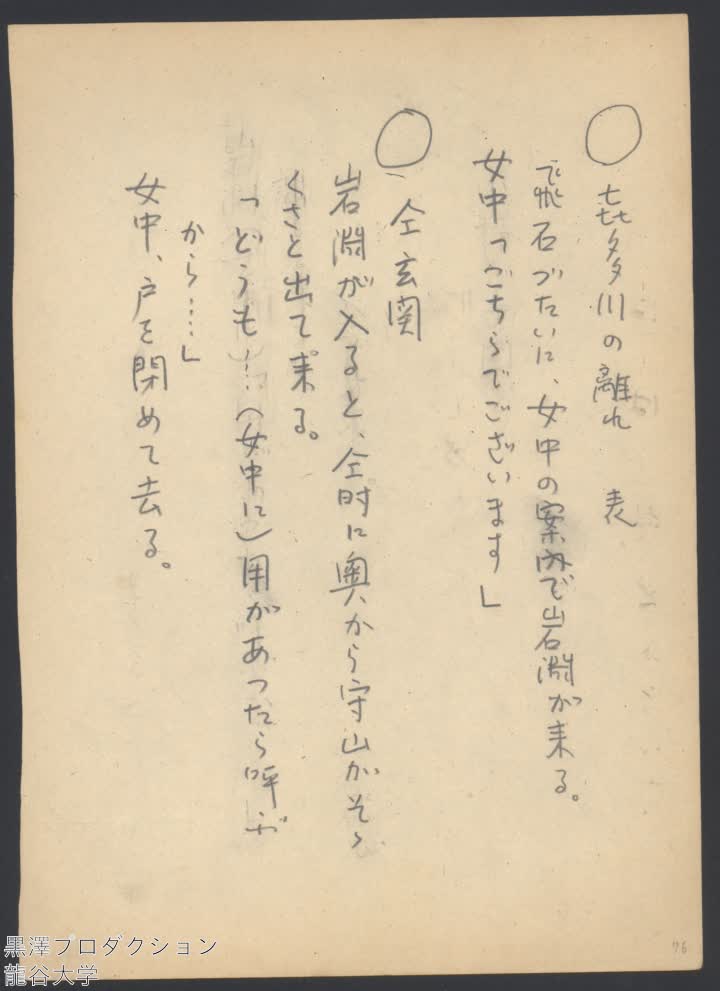 ○ 㐂多川の離れ 表
飛石づたいに、女中の案内で岩淵が来る。
女中「こちらでございます」
○ 仝 玄関
岩淵が入ると、仝時に奥から守山がそゝ
くさと出て来る。
「どうも…(女中に)用があつたら呼ぶ
から……」
女中、戸を閉めて去る。
76
黒澤プロダクション
龍谷大学